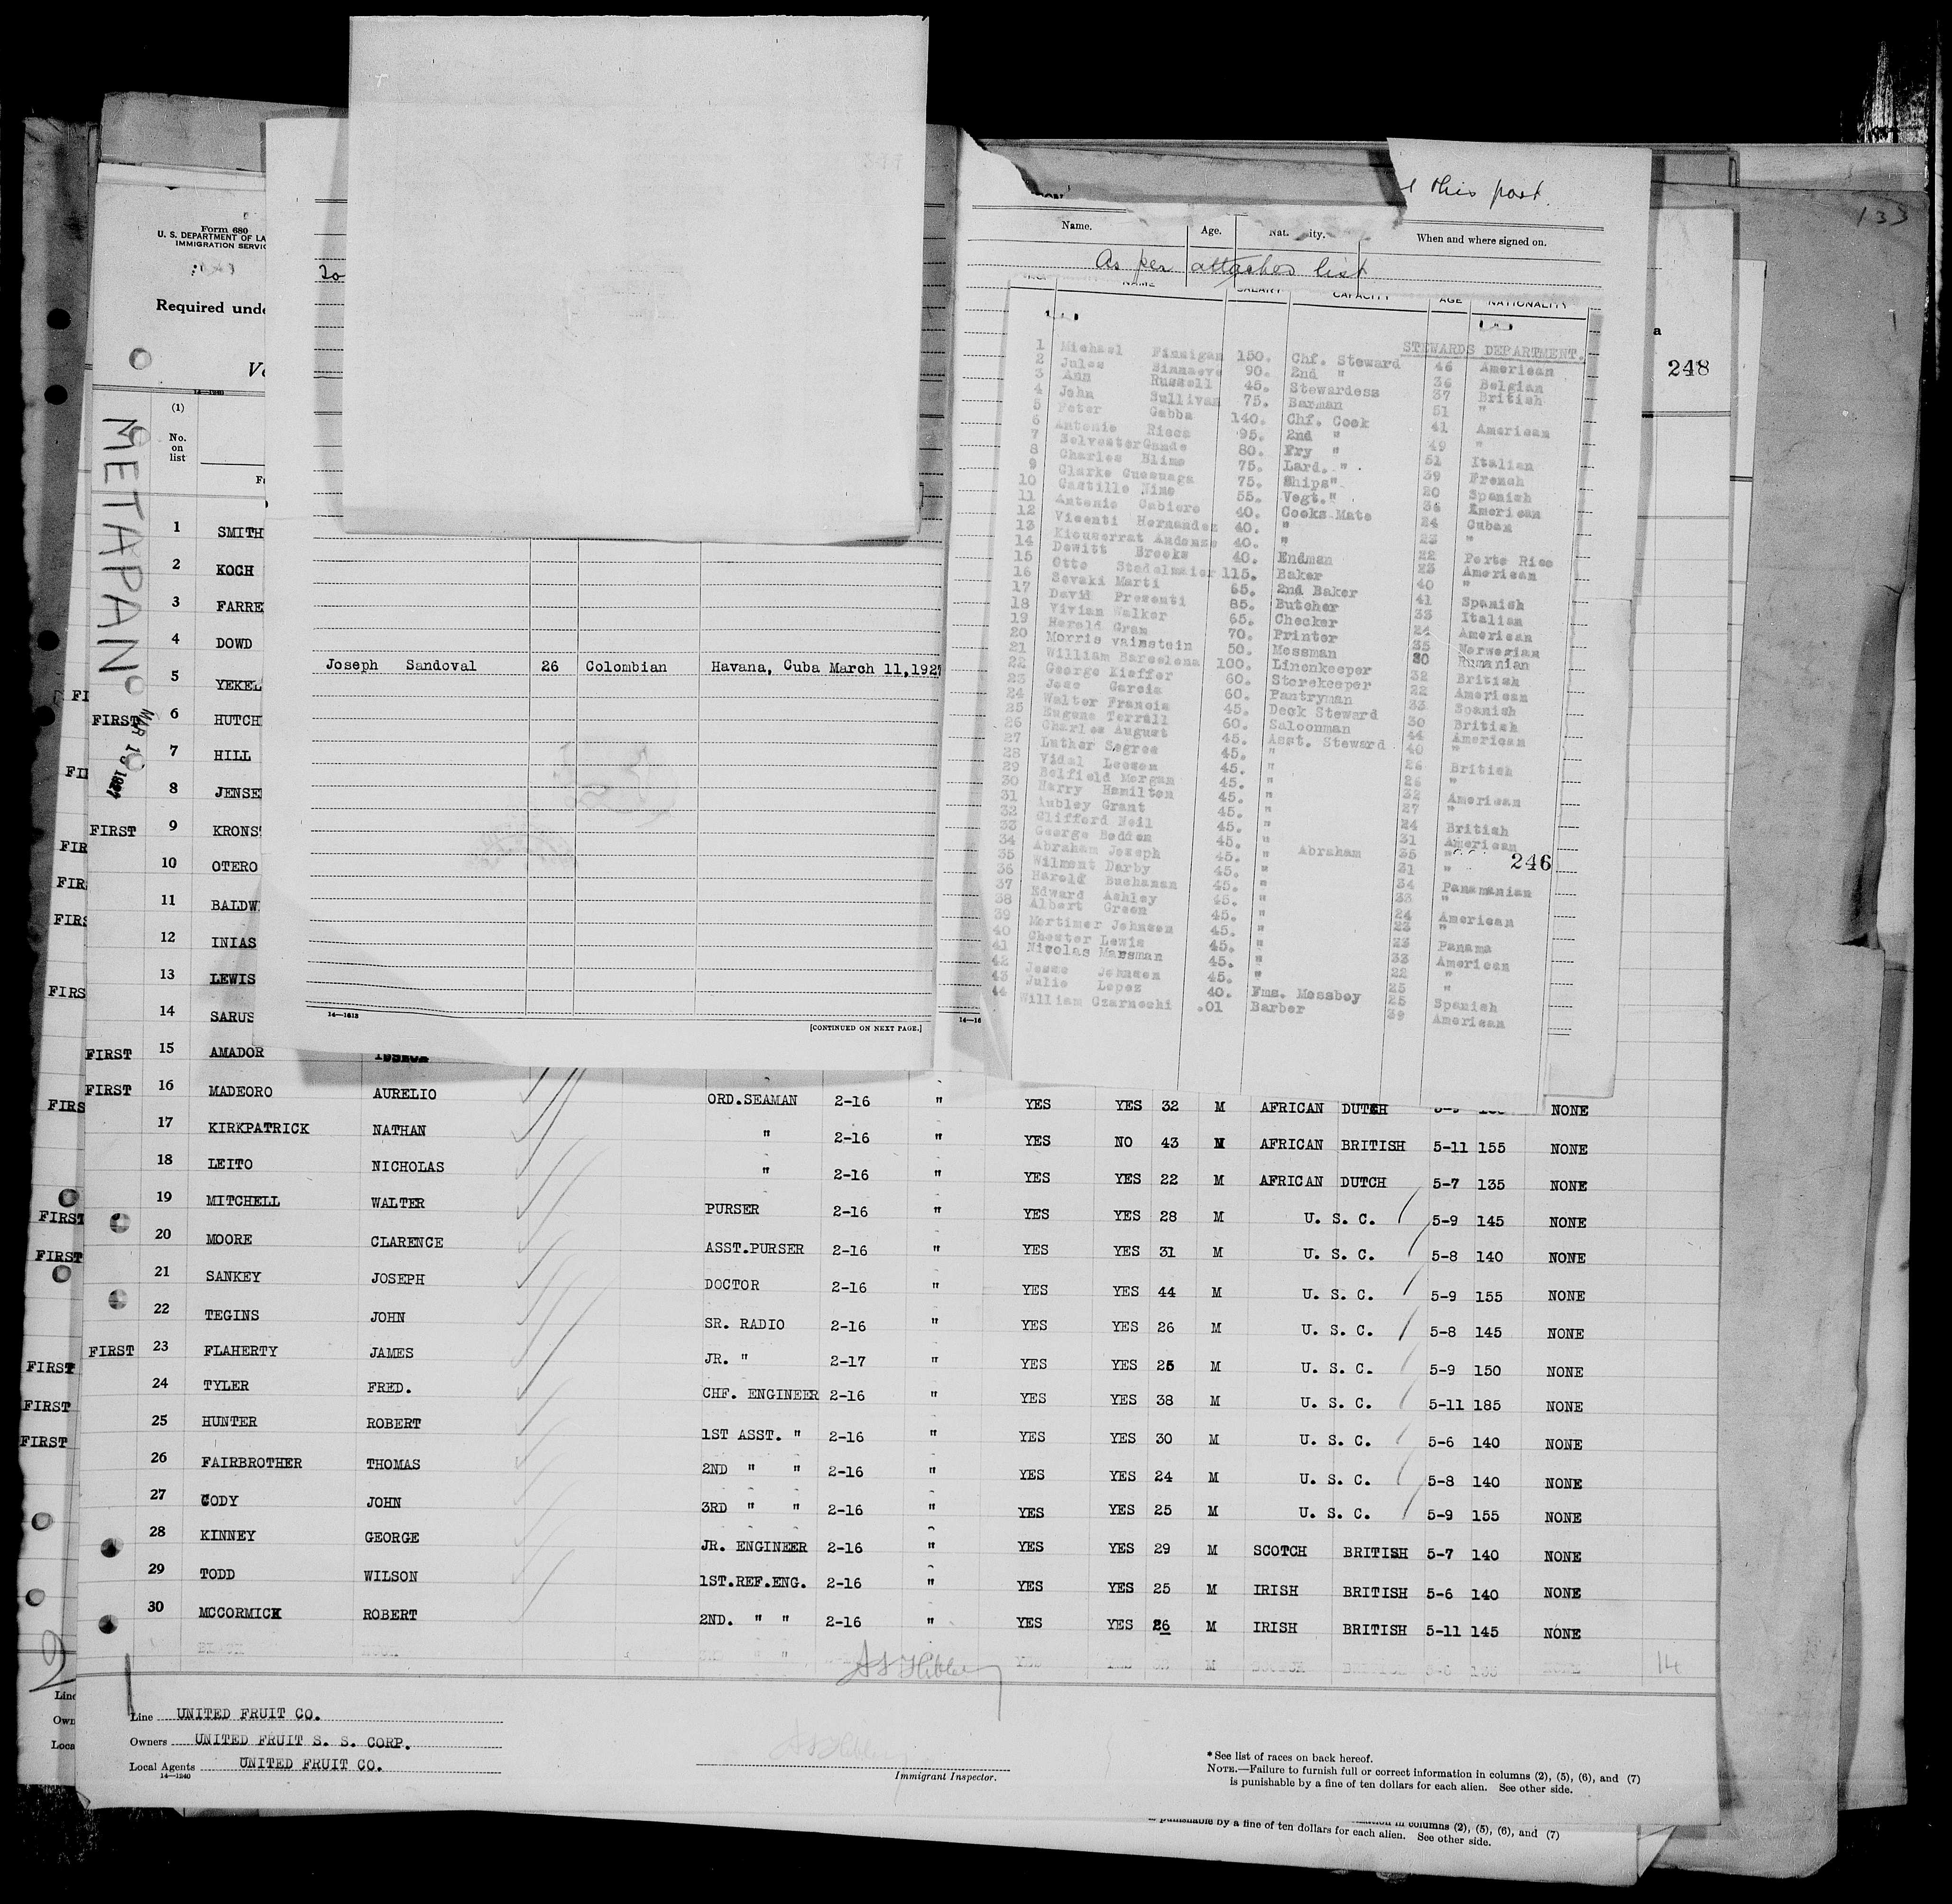 l this port.
133
Form 680
U. S. DEPARTMENT OF LA
IMMIGRATION SERVIC
Required unde
Ve
14—1240
(1)
No.
on
list
METAPAN
MAR 1 1927
Name.
Age.
Nat ity.
When and where signed on.
As per attached list
NAME
SALARY
CAPACITY
AGE
NATIONALITY
248
a
STEWARDS DEPARTMENT.
1 Michael Finnigan 150. Chf. Steward 46 American
2 Jules 90. 2nd " 36 Belgian
3 Ann Russell 45. Stewardess 37 British
4 John Sullivan 75. Barman 51 "
5 Peter Gabba 140. Chf. Cook 41 American
6 Antonio Risca 95. 2nd " 49 "
7 Selvester 80. Fry " 51 Italian
8 Charles Blime 75. Lard. " 39 French
9 Clarke 75. Ships" 20 Spanish
10 Castillo Nime 55. Vegt." 36 American
11 Antonio Cabiero 40. Cooks Mate 24 Cuban
12 Vicenti Hernandez 40. " 23 "
13 40. " 22 Porto Rico
14 Dewitt Brooks 40. Endman 23 American
15 Otto Stadelmaier 115. Baker 40 "
16 Sevaki Marti 65. 2nd Baker 41 Spanish
17 David Presenti 85. Butcher 33 Italian
18 Vivian Walker 65. Checker 24 American
19 Harold Gram 70. Printer 35 Norwegian
20 Morris vainstein 50. Messman 30 Rumanian
21 William Barcelona 100. Linenkeeper 32 British
22 George Kieffer 60. Storekeeper 22 American
23 Jose Garcia 60. Pantryman 33 Spanish
24 Walter Francis 45. Deck Steward 30 British
25 Eugene Terrall 60. Saloonman 44 American
26 Charles August 45. Asst. Steward 40 "
27 Luther Segree 45. " 26 British
28 Vidal Leeson 45. " 26 "
29 Belfield Morgan 45. " 32 American
30 Harry Hamilton 45. " 27 "
31 Aubley Grant 45. " 24 British
32 Clifford Neil 45. " 31 American
33 George Bodden 45. " Abraham 35 "
34 Abraham Joseph 45. " 31 "
35 Wilment Darby 45. " 34 Panamanian
36 Harold Buchanan 45. " 33 "
37 Edward Ashley 45. " 24 American
38 Albert Green 45. " 23 "
39 Mortimer Johnson 45. " 23 Panama
40 Chester Lewis 45. " 33 American
41 Nicolas Marsman 45. " 22 "
42 Jesse Johnson 45. " 25 "
43 Julio Lopez 40. Fms. Messboy 25 Spanish
44 William Czarnochi .01 Barber 39 American
246
Joseph Sandoval 26 Colombian Havana, Cuba March 11,1927
14—1618
[CONTINUED ON NEXT PAGE.]
14—16
1 SMITH
2 KOCH
3 FARRE
4 DOWD
5 YEKEL
FIRST 6 HUTCH
7 HILL
8 JENSE
FIRST 9 KRONS
10 OTERO
11 BALDW
12 INIAS
13 LEWIS
14 SARUS
FIRST 15 AMADOR
FIRST 16 MADEORO AURELIO ORD.SEAMAN 2-16 " YES YES 32 M AFRICAN DUTCH NONE
17 KIRKPATRICK NATHAN " 2-16 " YES NO 43 M AFRICAN BRITISH 5-11 155 NONE
18 LEITO NICHOLAS " 2-16 " YES YES 22 M AFRICAN DUTCH 5-7 135 NONE
19 MITCHELL WALTER PURSER 2-16 " YES YES 28 M U. S. C. 5-9 145 NONE
20 MOORE CLARENCE ASST.PURSER 2-16 " YES YES 31 M U. S. C. 5-8 140 NONE
21 SANKEY JOSEPH DOCTOR 2-16 " YES YES 44 M U. S. C. 5-9 155 NONE
22 TEGINS JOHN SR. RADIO 2-16 " YES YES 26 M U. S. C. 5-8 145 NONE
FIRST 23 FLAHERTY JAMES JR. " 2-17 " YES YES 25 M U. S. C. 5-9 150 NONE
24 TYLER FRED. CHF. ENGINEER 2-16 " YES YES 38 M U. S. C. 5-11 185 NONE
25 HUNTER ROBERT 1ST ASST. " 2-16 " YES YES 30 M U. S. C. 5-6 140 NONE
26 FAIRBROTHER THOMAS 2ND " " 2-16 " YES YES 24 M U. S. C. 5-8 140 NONE
27 CODY JOHN 3RD " " 2-16 " YES YES 25 M U. S. C. 5-9 155 NONE
28 KINNEY GEORGE JR. ENGINEER 2-16 " YES YES 29 M SCOTCH BRITISH 5-7 140 NONE
29 TODD WILSON 1ST.REF.ENG. 2-16 " YES YES 25 M IRISH BRITISH 5-6 140 NONE
30 MCCORMICK ROBERT 2ND. " " 2-16 " YES YES 26 M IRISH BRITISH 5-11 145 NONE
14
Line UNITED FRUIT CO.
Owners UNITED FRUIT S. S. CORP.
Local Agents UNITED FRUIT CO.
14—1240
Immigrant Inspector.
*See list of races on back hereof.
NOTE.—Failure to furnish full or correct information in columns (2), (5), (6), and (7)
is punishable by a fine of ten dollars for each alien. See other side.
in columns (2), (5), (6), and (7)
is punishable by a fine of ten dollars for each alien. See other side.